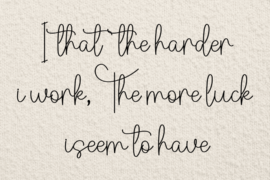 I that the harder
i work, The more luck
i seem to have